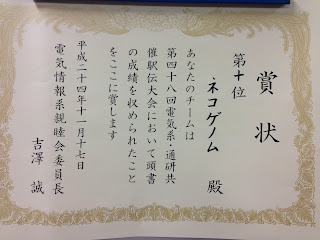 賞状
第十位
ネコゲノム 殿
あなたのチームは
第四十八回電気系・通研共
催駅伝大会において頭書
の成績を収められたこと
をここに賞します
平成二十四年十一月十七日
電気情報系親睦会委員長
吉澤 誠